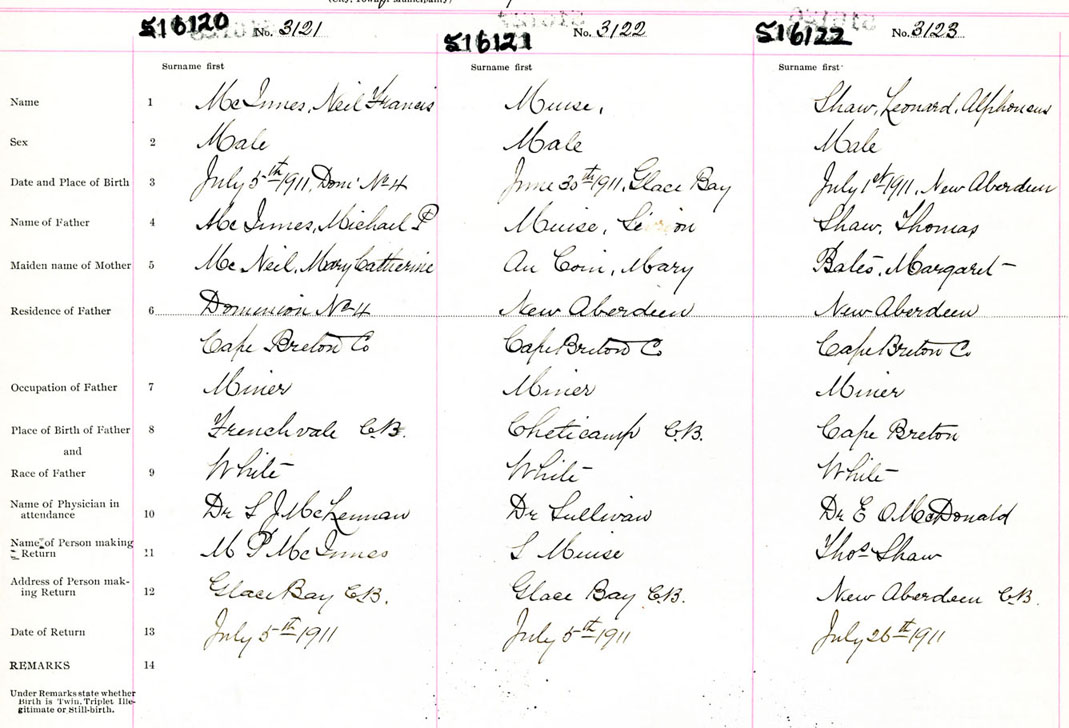 516120 No. 3121 516121 No. 3122 516122 No. 3123
Surname first Surname first Surname first
Name 1 McInnes, Neil Francis Muise, Shaw, Leonard, Alphonsus
Sex 2 Male Male Male
Date and Place of Birth 3 July 5th 1911, Dom: No 4 June 30th 1911, Glace Bay July 1st 1911, New Aberdeen
Name of Father 4 McInnes, Michael P Muise, Shaw, Thomas
Maiden name of Mother 5 McNeil, Mary Catherine Au Coin, Mary Bates, Margaret
Residence of Father 6 Dominion No 4 New Aberdeen New Aberdeen
Cape Breton Co Cape Breton Co Cape Breton Co
Occupation of Father 7 Miner Miner Miner
Place of Birth of Father 8 Frenchvale C.B. Cheticamp C.B. Cape Breton
and
Race of Father 9 White White White
Name of Physician in
attendance 10 Dr S J McKennan Dr Sullivan Dr E O McDonald
Name of Person making
Return 11 M P McInnes S Muise Thos Shaw
Address of Person mak-
ing Return 12 Glace Bay C.B. Glace Bay C.B. New Aberdeen C.B.
Date of Return 13 July 5th 1911 July 5th 1911 July 26th 1911
REMARKS 14
Under Remarks state whether
Birth is Twin, Triplet Ille-
gitimate or Still-birth.